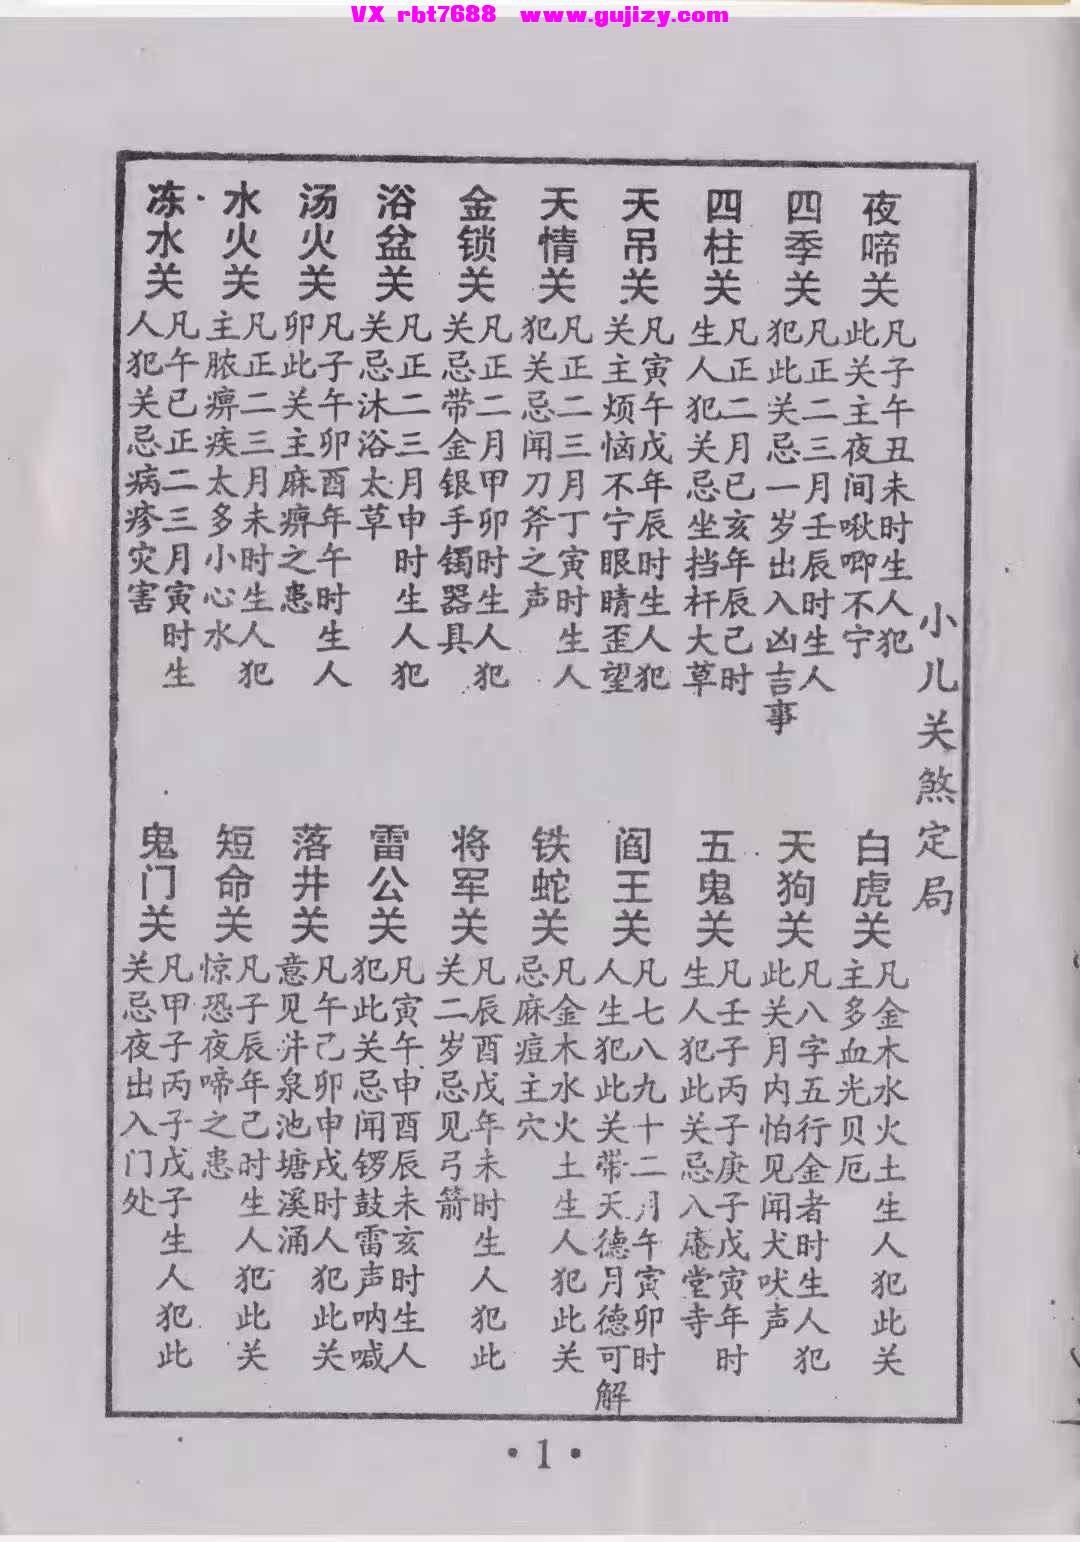 VX rbt7688 www.gujizy.com
小儿关煞定局
夜啼关
凡子午丑未时生人犯
此关主夜间啾唧不宁
四季关
凡正二三月壬辰时生人
犯此关忌一岁出入凶吉事
四柱关
凡正二月巳亥年辰己时
生人犯关忌坐挡杆大草
天吊关
凡寅午戊年辰时生人犯
关主烦恼不宁眼睛歪望
天情关
凡正二三月丁寅时生人
犯关忌闻刀斧之声
金锁关
凡正二月甲卯时生人犯
关忌带金银手镯器具
浴盆关
凡正二三月申时生人犯
关忌沐浴太草
汤火关
凡子午卯酉年午时生人
卯此关主麻痹之患
水火关
凡正二三月未时生人犯
主脓痹疾太多小心水
冻水关
凡午己正二三月寅时生
人犯关忌病疹灾害
白虎关
凡金木水火土生人犯此关
主多血光贝厄
天狗关
凡八字五行金者时生人犯
此关月内怕见闻犬吠声
五鬼关
凡壬子丙子庚子戊寅年时
生人犯此关忌入庵堂寺
阎王关
凡七八九十二月午寅卯时
人生犯此关带天德月德可解
铁蛇关
凡金木水火土生人犯此关
忌麻痘主穴
将军关
凡辰酉戊年未时生人犯此
关二岁忌见弓箭
雷公关
凡寅午申酉辰未亥时生人
犯此关忌闻锣鼓雷声呐喊
落井关
凡午己卯申戌时人犯此关
意见井泉池塘溪涌
短命关
凡子辰年己时生人犯此关
惊恐夜啼之患
鬼门关
凡甲子丙子戊子生人犯此
关忌夜出入门处
·1·